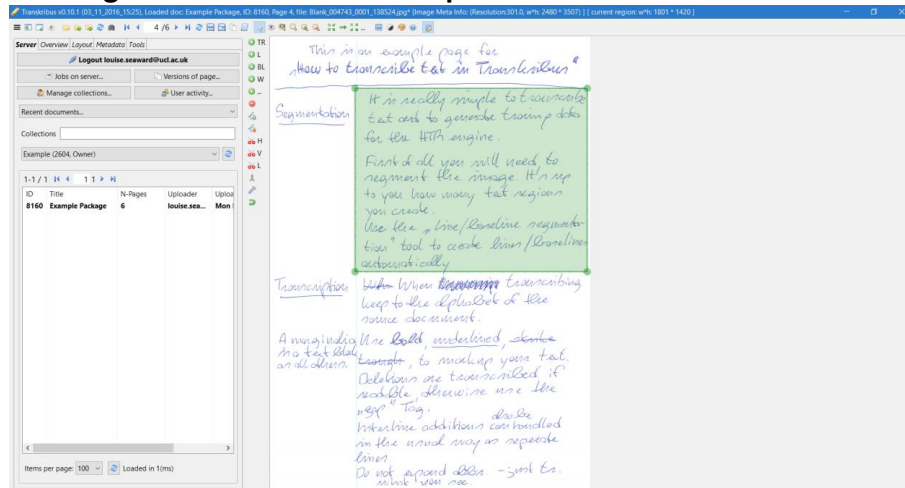 Transkribus v0.10.1 (03_11_2016_15:25), Loaded doc: Example Package, ID: 8160, Page 4, file: Blank_004743_0001_138524.jpg* [Image Meta Info: (Resolution:301.0, w*h: 2480 * 3507) ] [ current region: w*h: 1801 * 1420 ]
4 /6
Server Overview Layout Metadata Tools
Logout louise.seaward@ucl.ac.uk
Jobs on server... Versions of page...
Manage collections... User activity...
Recent documents...
Collections
Example (2604, Owner)
1-1 / 1 1 1
ID Title N-Pages Uploader Uploa
8160 Example Package 6 louise.sea... Mon
Items per page: 100 Loaded in 1(ms)
TR
L
BL
W
...
H
V
L
This is an example page for
"How to transcribe text in Transkribus"
Segmentation
It is really simple to transcribe
text and to generate training data
for the HTR engine.
First of all you will need to
segment the image. It's up
to you how many text regions
you create.
Use the "line/baseline segmenta-
tion" tool to create lines/baselines
automatically
Transcription
When transcribing
keep to the alphabet of the
source document.
A marginalia
is a text block
as all others.
Use bold, underlined, strike
through, to markup your text.
Deletions are transcribed if
readable, otherwise use the
"gap" Tag.
Interline additions can be handled
in the usual way as seperate
lines
Do not expand abbr. - just tr.
what you see.